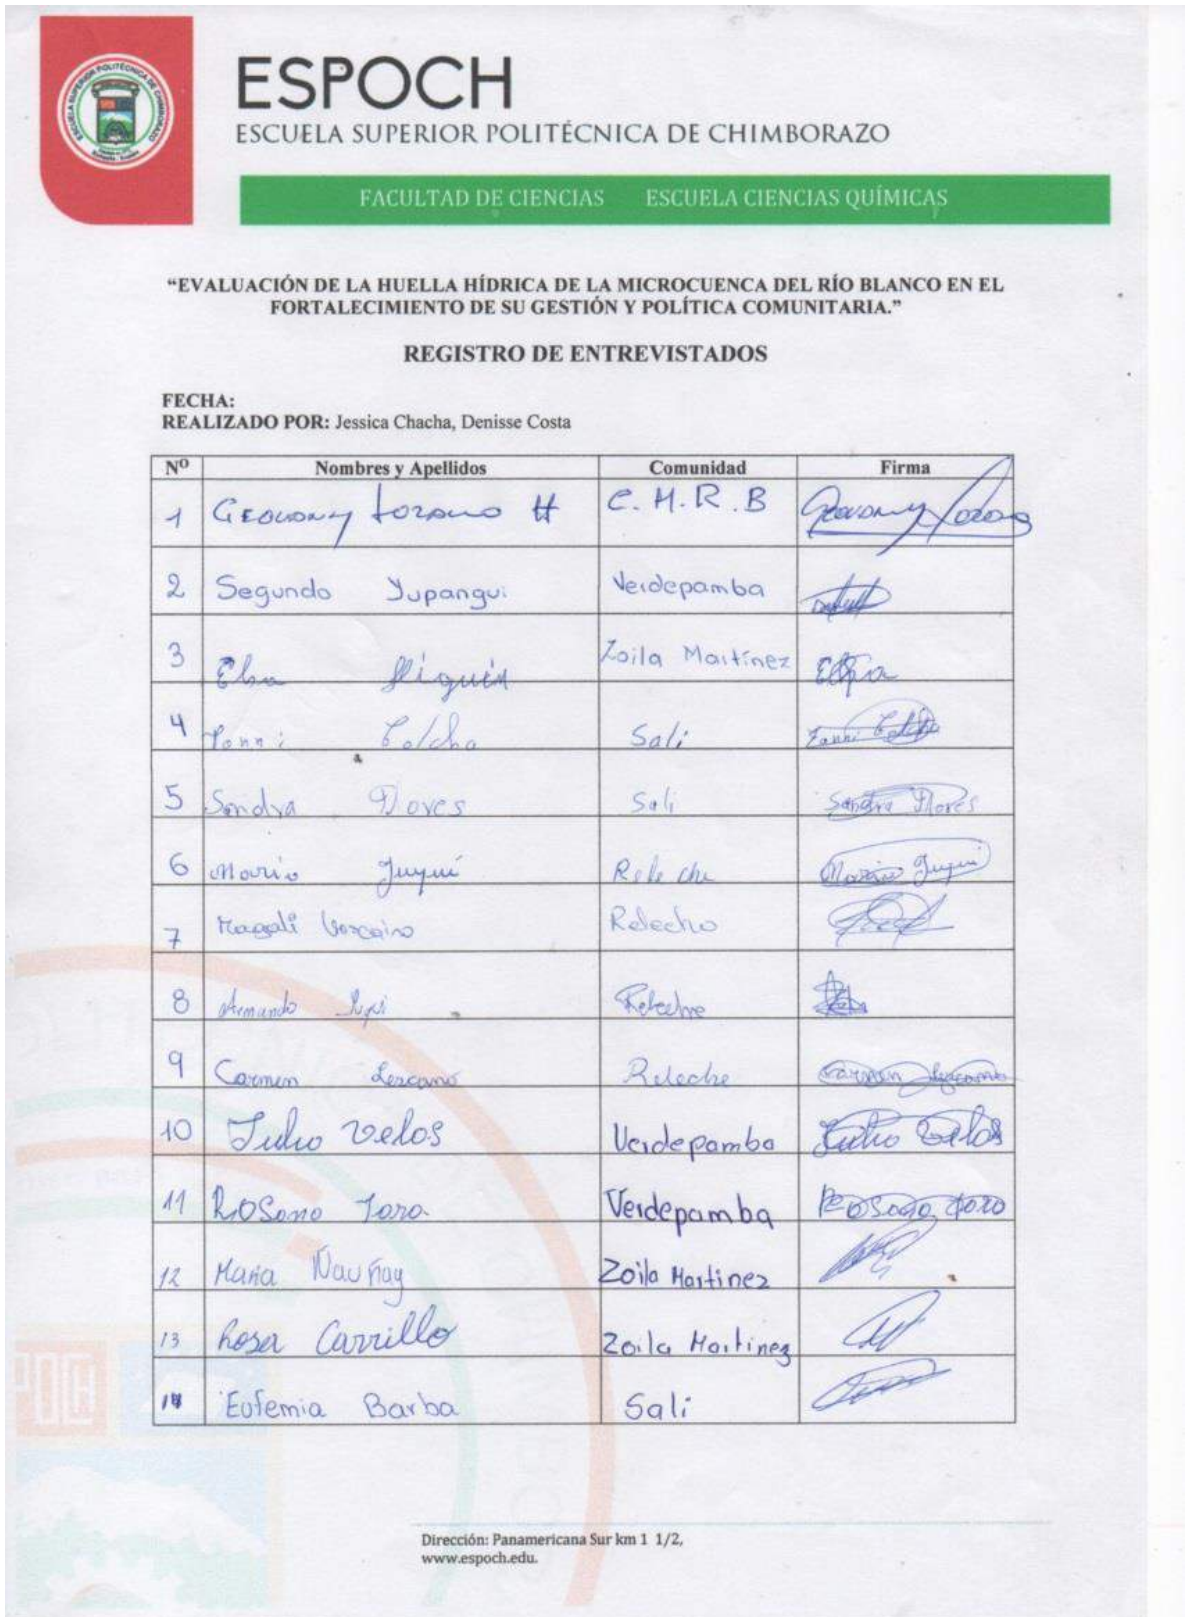 ESPOCH
ESCUELA SUPERIOR POLITÉCNICA DE CHIMBORAZO
FACULTAD DE CIENCIAS ESCUELA CIENCIAS QUÍMICAS
“EVALUACIÓN DE LA HUELLA HÍDRICA DE LA MICROCUENCA DEL RÍO BLANCO EN EL
FORTALECIMIENTO DE SU GESTIÓN Y POLÍTICA COMUNITARIA.”
REGISTRO DE ENTREVISTADOS
FECHA:
REALIZADO POR: Jessica Chacha, Denisse Costa
Nº Nombres y Apellidos Comunidad Firma
1 Geovany Lozano H C.H.R.B Geovany Lozano
2 Segundo Yupangui Verdepamba
3 Elsa Zoila Martínez Elsa
4 Colcha Sali
5 Sandra Flores Sali Sandra Flores
6 Mario Juqui Releche Mario Juqui
7 Magali Releche
8 Armando Releche
9 Carmen Lezcano Releche Carmen Lezcano
10 Julio Velos Verdepamba Julio Velos
11 Rosana Toro Verdepamba Toro
12 Maria Ñauñay Zoila Martinez
13 Rosa Carrillo Zoila Martinez
14 Eufemia Barba Sali
Dirección: Panamericana Sur km 1 1/2,
www.espoch.edu.